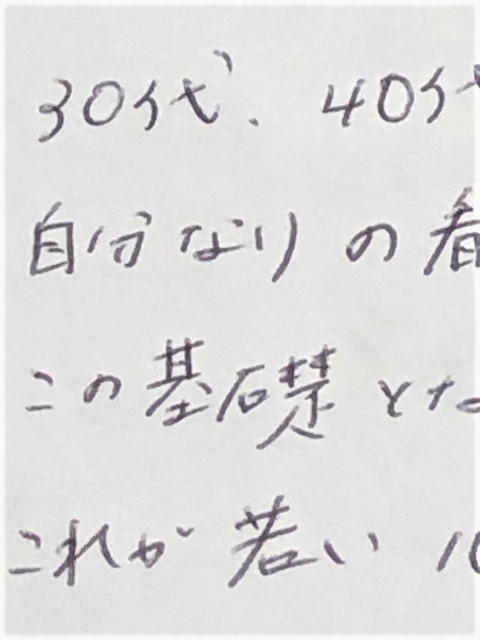 30代、40代
自分なりの
この基礎とな
これが若い